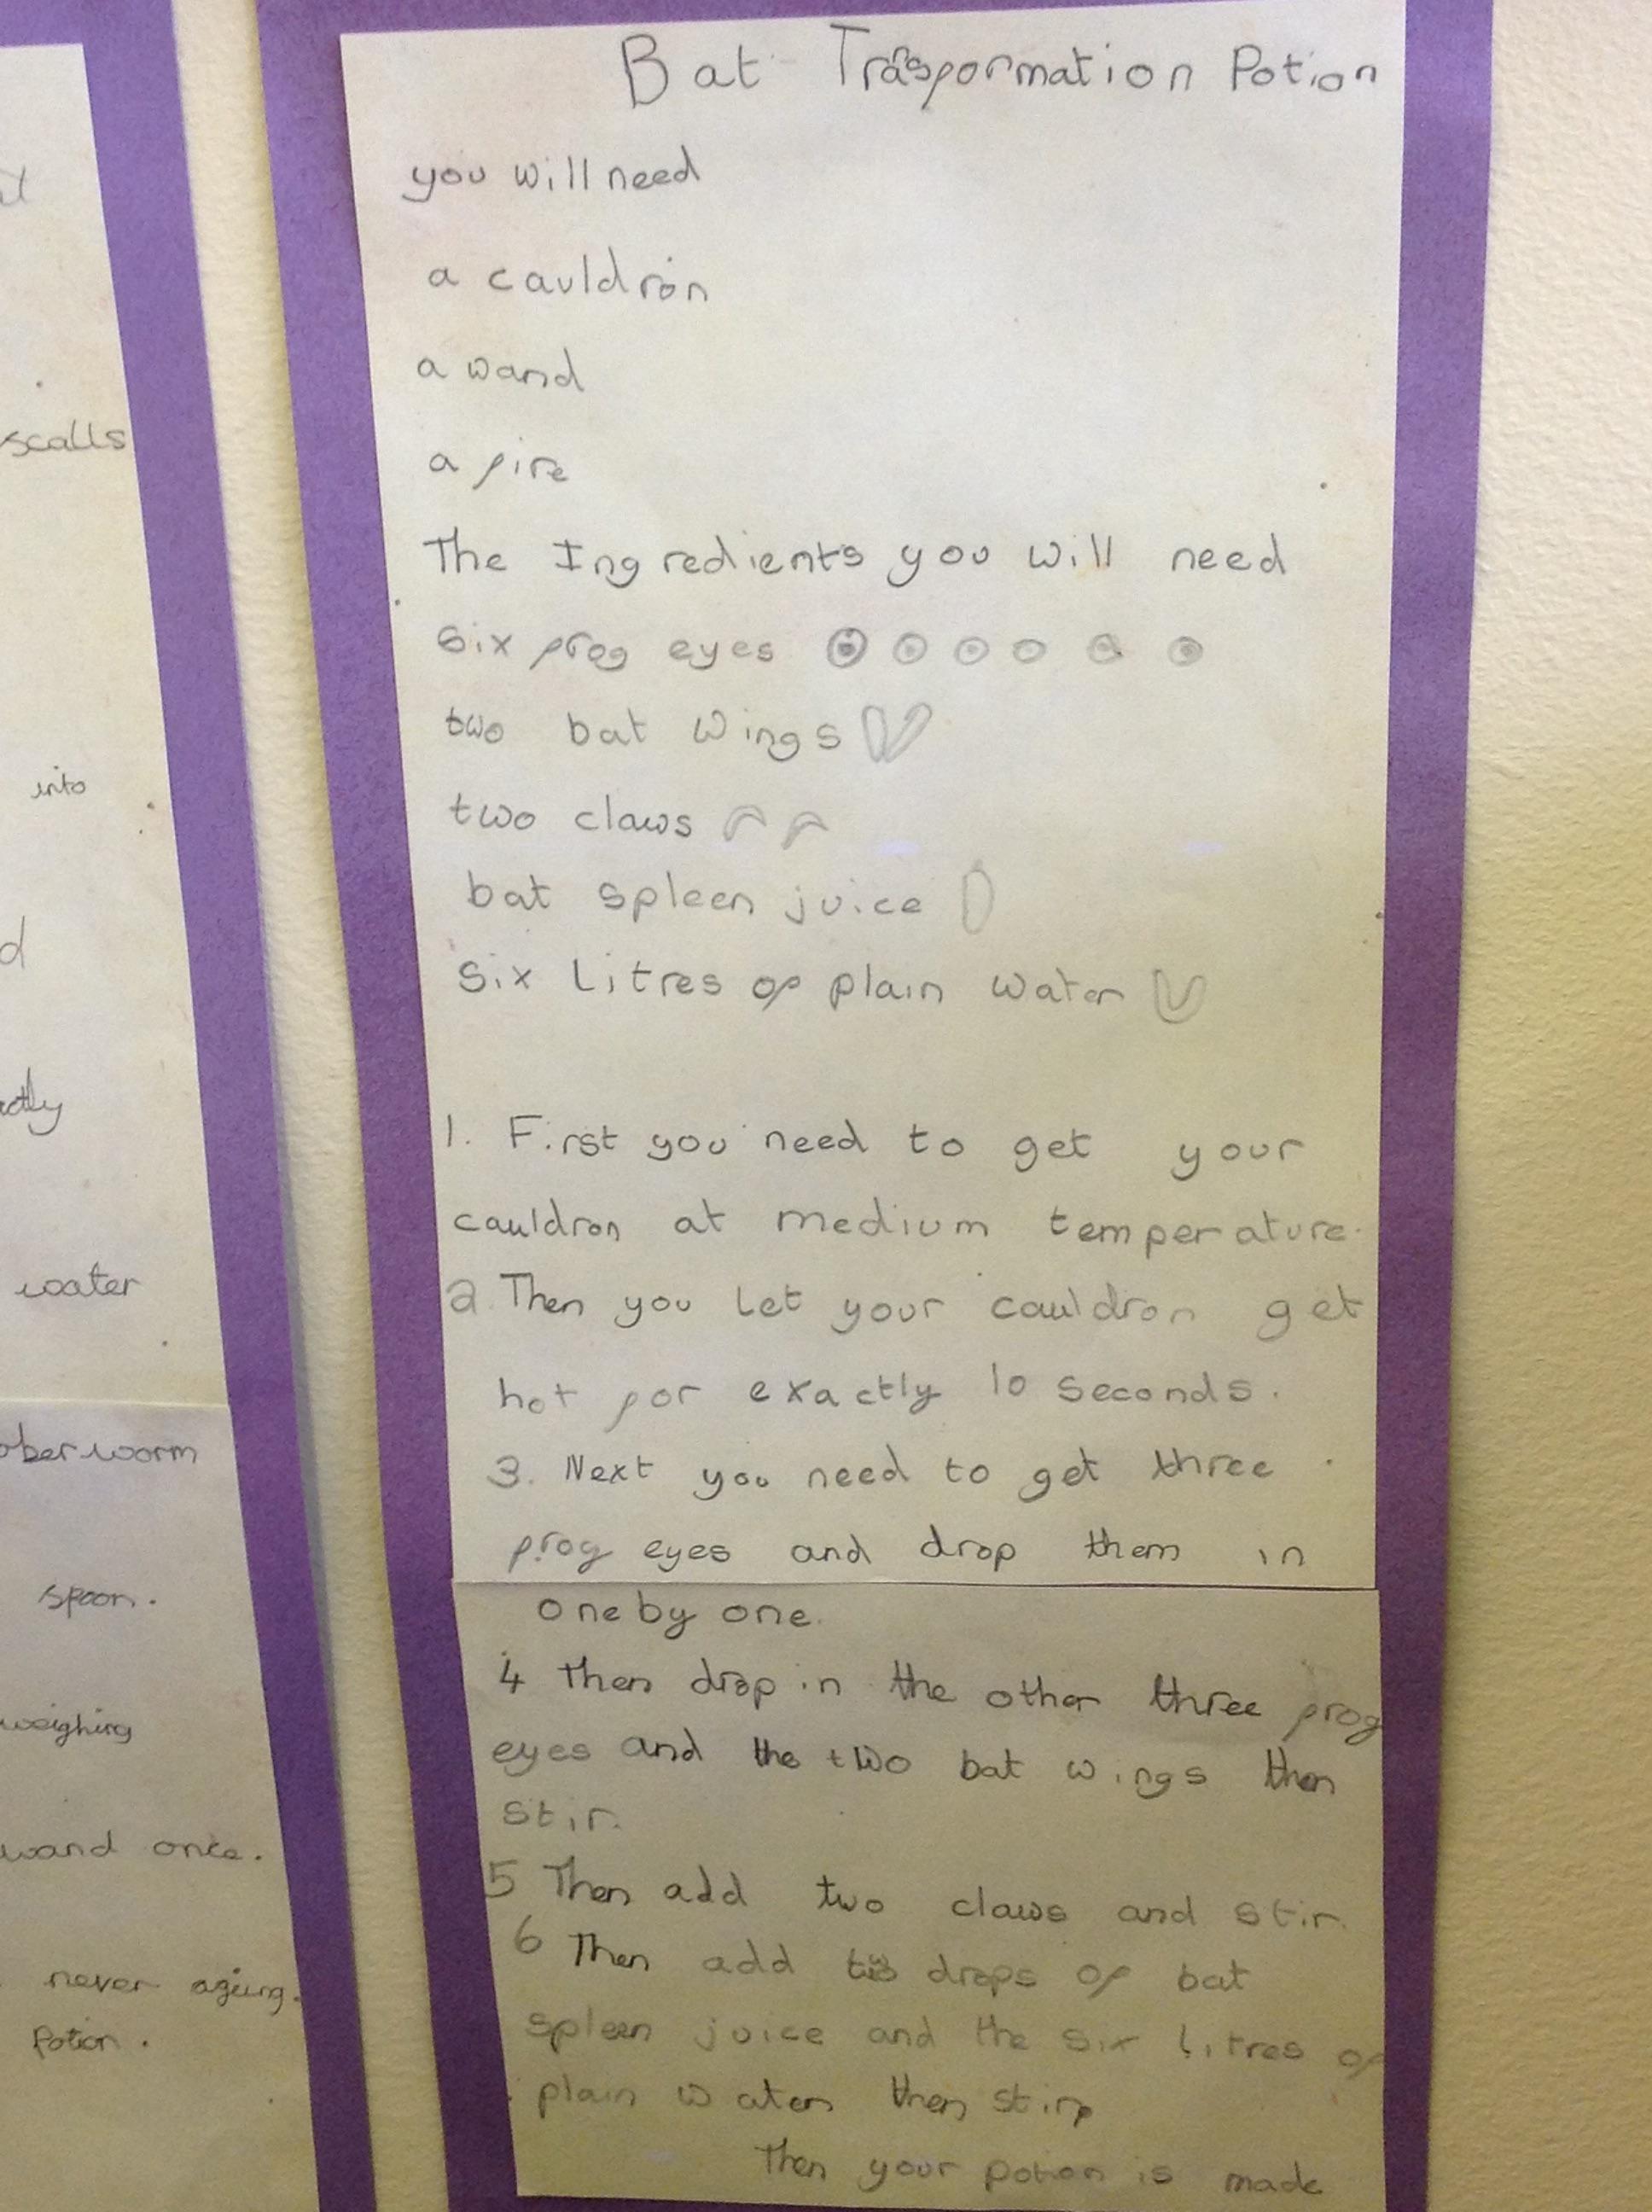 Bat Trasformation Potion
you will need
a cauldron
a wand
a fire
The Ingredients you will need
six frog eyes
two bat wings
two claws
bat spleen juice
six litres of plain water
1. First you need to get your
cauldron at medium temperature.
2. Then you let your cauldron get
hot for exactly 10 seconds.
3. Next you need to get three
frog eyes and drop them in
one by one.
4 Then drop in the other three frog
eyes and the two bat wings then
stir.
5 Then add two claws and stir.
6 Then add drops of bat
spleen juice and the six litres of
plain water then stir
Then your potion is made
scalls
into
water
worm
spoon.
weighing
wand once.
never ageing.
Potion.